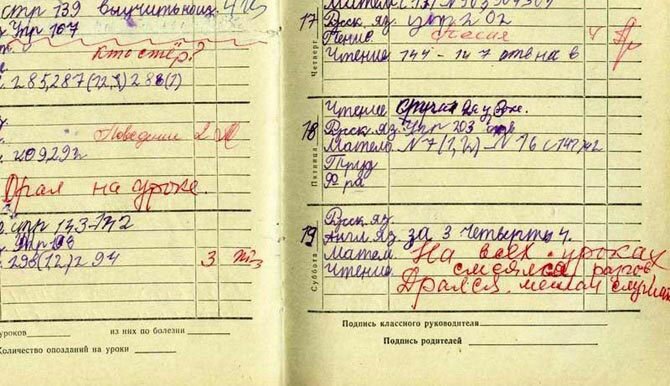 стр 139 выучить наиз
Упр 167
Кто стёр?
285,287(12,3) 288(2)
Поведение 2
Орал на уроке.
стр 143-142
Упр
298(12) 294
3
уроков
из них по болезни
Количество опозданий на уроки
17
Четверг
Русск яз. упр 202
Пение. Песня 4
Чтение 144-147 отв на в
18
Пятница
Чтение
Русск яз. Упр 203
Матем N7(1,2) N 16 с 142
Труд
Ф ра
19
Суббота
Русск яз.
Англ яз. за 3 четверть 4.
Матем
Чтение
На всех уроках
смеялся
Дрался, мешал
Подпись классного руководителя
Подпись родителей